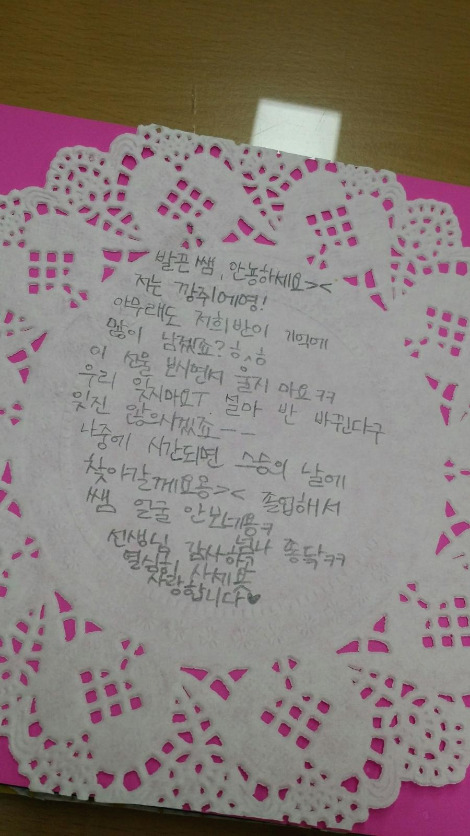 발끈쌤, 안농하세요><
저는 깡쥐에영!
아무래도 저희 반이 기억에
많이 남겠죠? ㅎ^ㅎ
이 선물 보시면서 울지 마요 ㅋㅋ
우리 잊지마요T 설마 반 바뀐다구
잊진 않으시겠죠ㅡㅡ
나중에 시간되면 스승의 날에
찾아갈께요옹>< 졸업해서
쌤 얼굴 안보니 넘나 좋닥ㅋㅋ
선생님 감사하고
열심히 사세요
사랑합니다♥